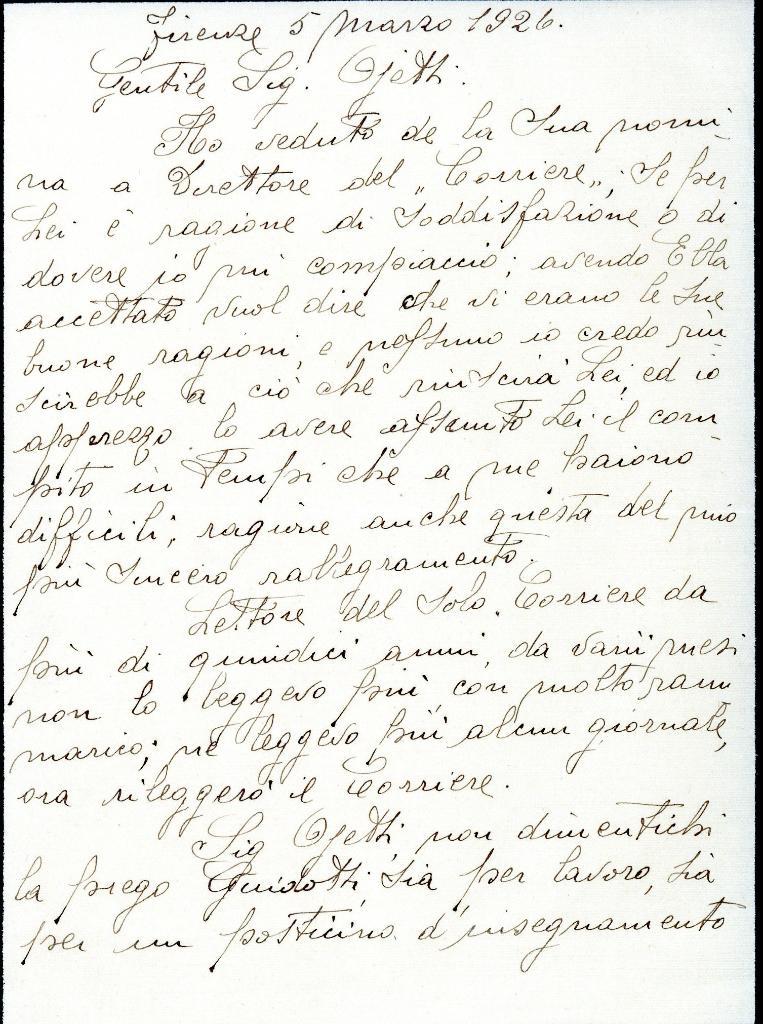 Firenze 5 Marzo 1926.
Gentile Sig. Ojetti.
Ho veduto de la Sua nomi-
na a Direttore del „Corriere„; Se per
Lei è ragione di Soddisfazione o di
dovere io mi compiaccio; avendo Ella
accettato vuol dire che vi erano le Sue
buone ragioni, e nessuno io credo riu
scirebbe a ciò che riuscirà Lei, ed io
apprezzo lo avere assunto Lei il com
pito in Tempi che a me paiono
difficili; ragione anche questa del mio
più Sincero rallegramento.
Lettore del Solo Corriere da
più di quindici anni, da varii mesi
non lo leggevo più, con molto ram
marico; ne leggevo più alcun giornale,
ora rileggerò il Corriere.
Sig Ojetti, non dimentichi
la prego Guidotti, Sia per lavoro, Sia
per un posticino d'insegnamento